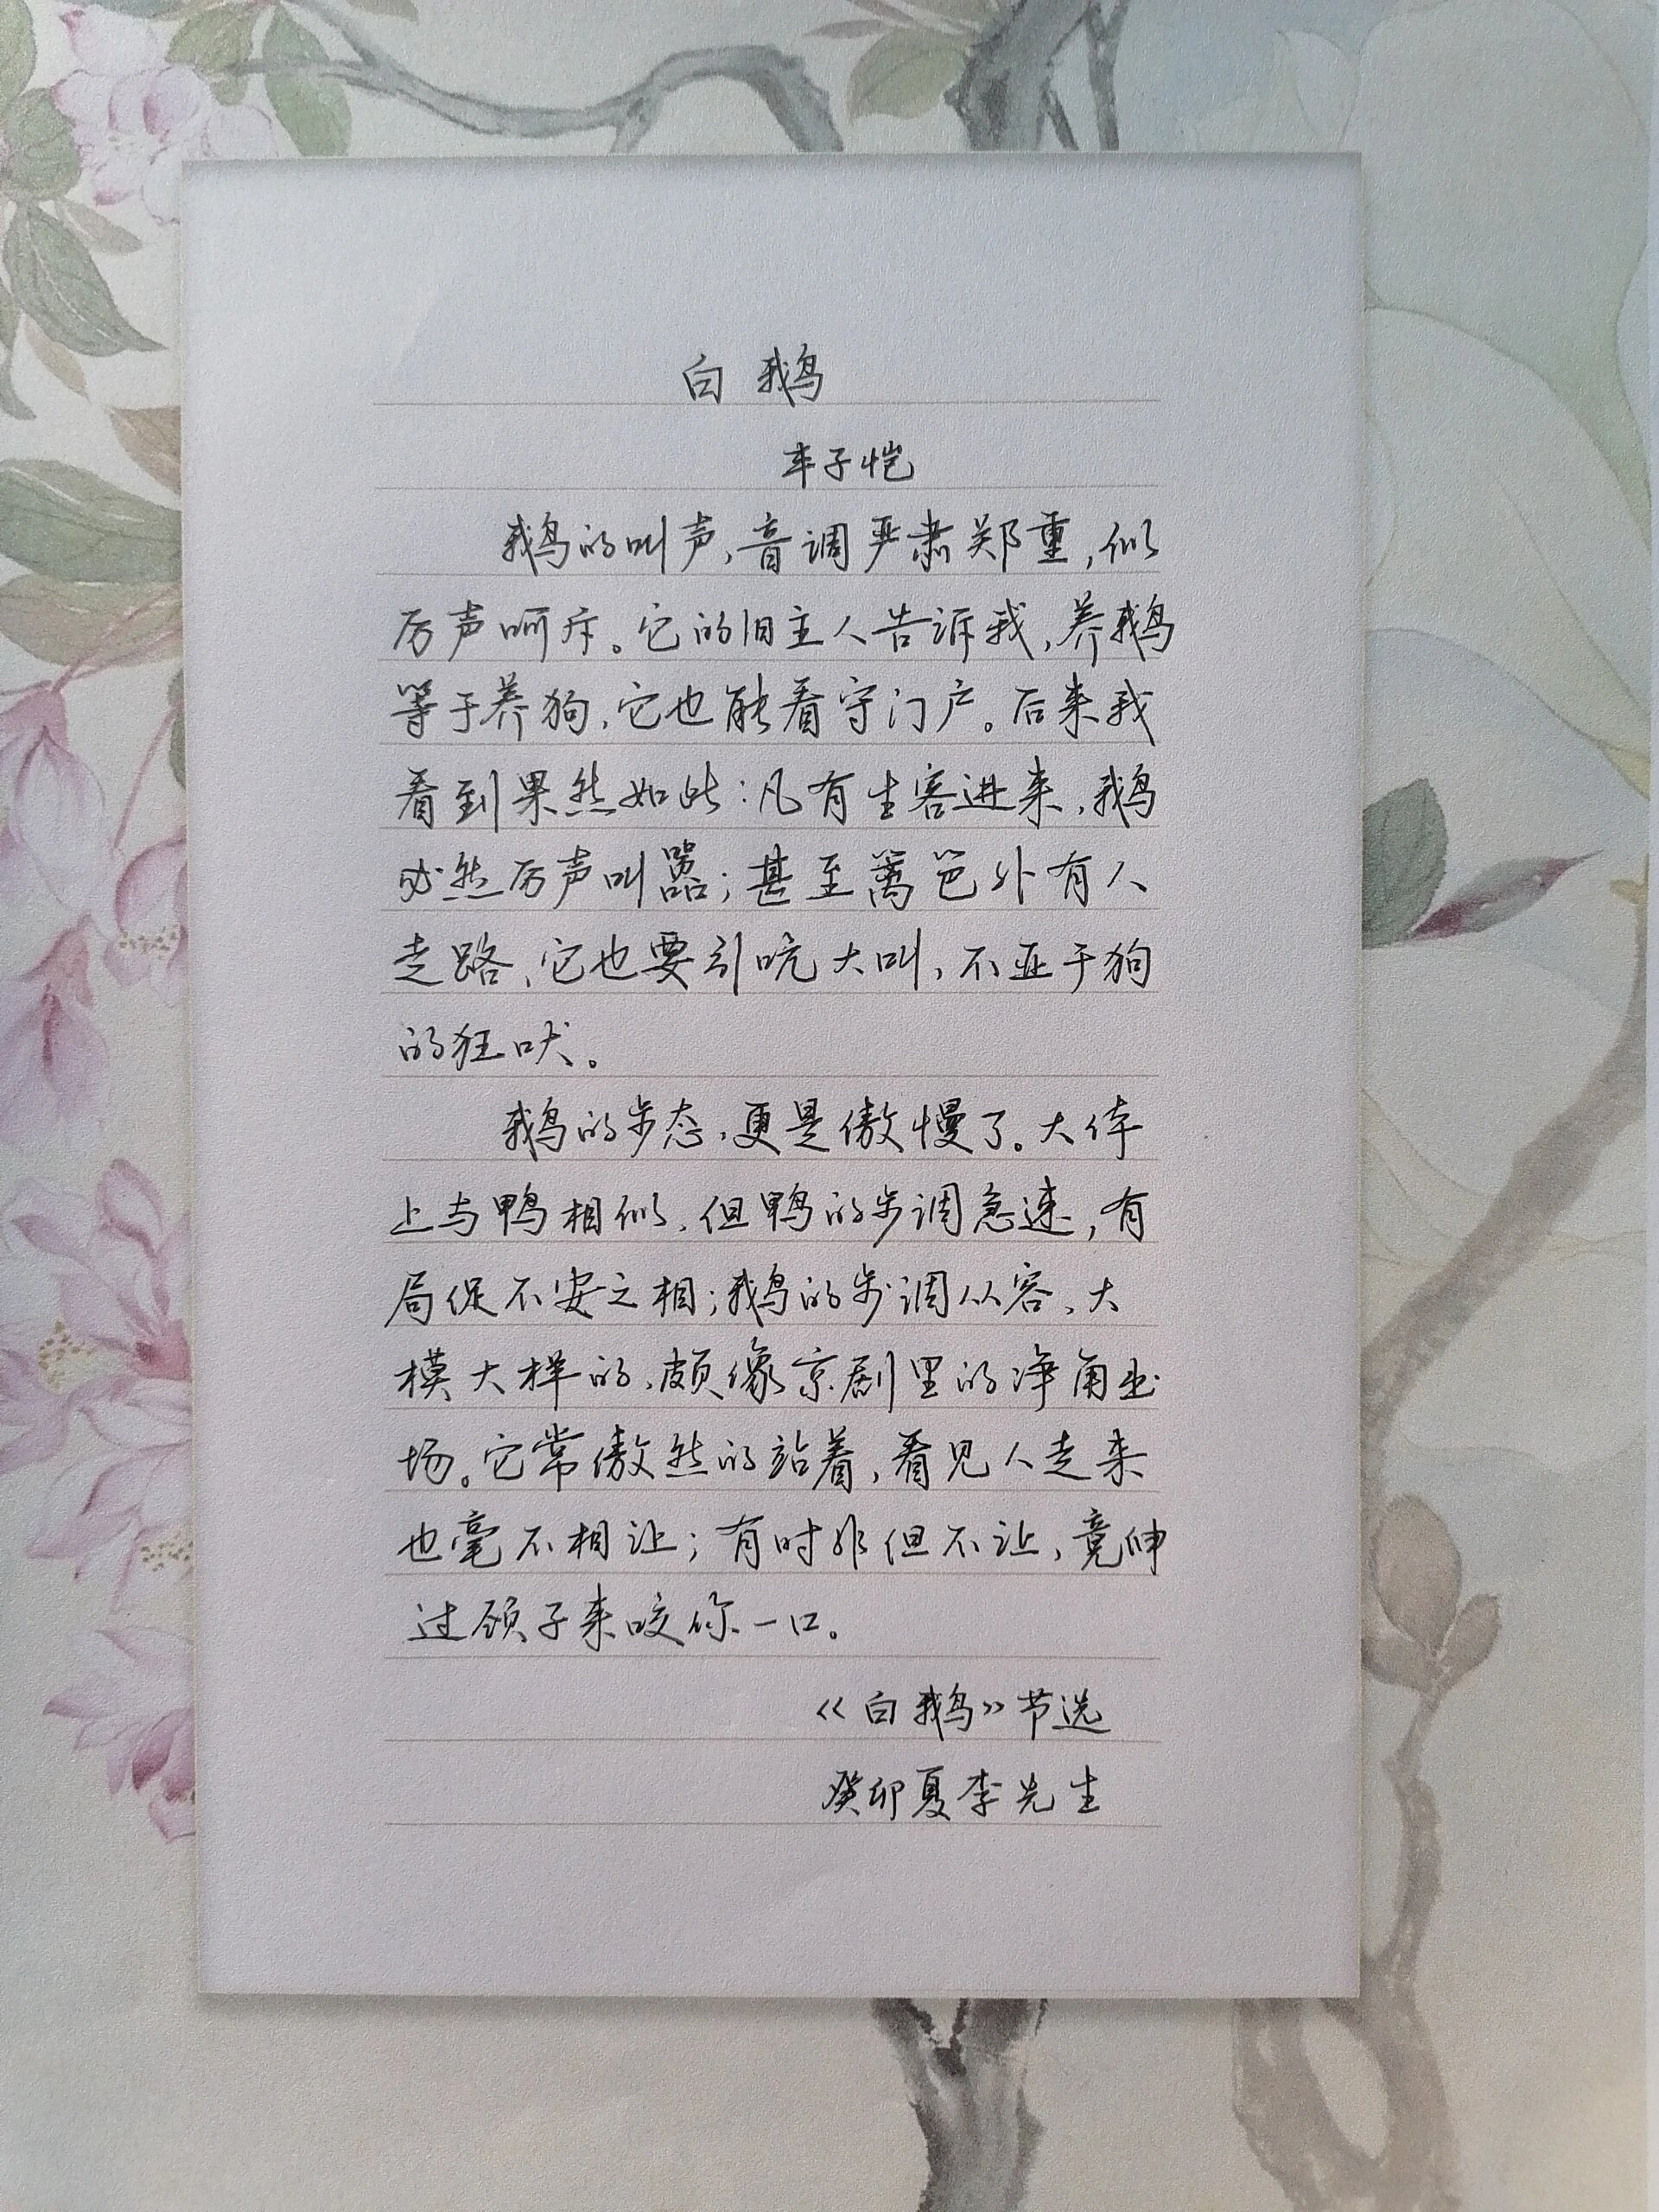 白鹅
丰子恺
鹅的叫声,音调严肃郑重,似
厉声呵斥。它的旧主人告诉我,养鹅
等于养狗,它也能看守门户。后来我
看到果然如此:凡有生客进来,鹅
必然厉声叫嚣;甚至篱笆外有人
走路,它也要引吭大叫,不亚于狗
的狂吠。
鹅的步态,更是傲慢了。大体
上与鸭相似,但鸭的步调急速,有
局促不安之相;鹅的步调从容,大
模大样的,颇像京剧里的净角出
场。它常傲然的站着,看见人走来
也毫不相让;有时非但不让,竟伸
过颈子来咬你一口。
《白鹅》节选
癸卯夏李先生